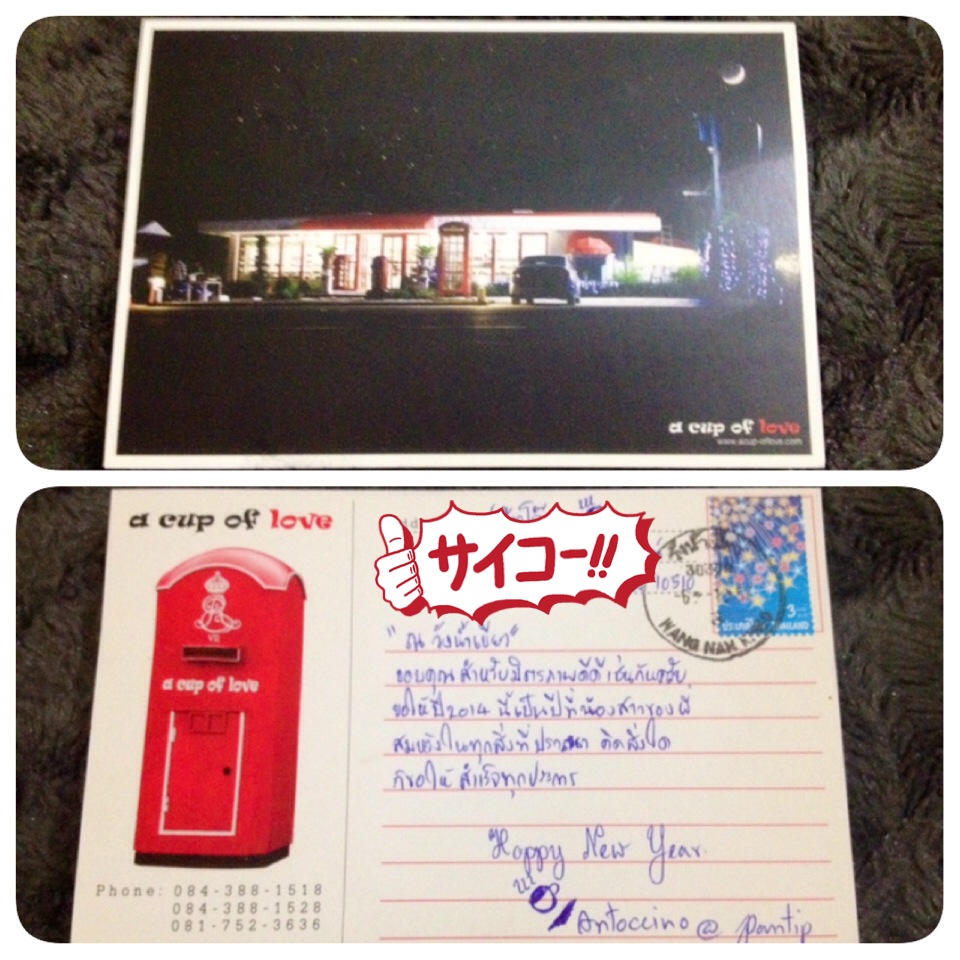 a cup of love
www.acup-oflove.com
a cup of love
サイコー!!
10510
3
ประเทศไทย THAILAND
WANG NAM
VII
a cup of love
"ณ วังน้ำเขียว"
ขอบคุณ สำหรับมิตรภาพดีดี เช่นกันครับ
ขอให้ปี 2014 นี้เป็นปีที่น้องสาวของพี่
สมหวังในทุกสิ่งที่ปรารถนา คิดสิ่งใด
ก็ขอให้ สำเร็จทุกประการ
Happy New Year.
Antoccino @ pantip
Phone: 084-388-1518
084-388-1528
081-752-3636